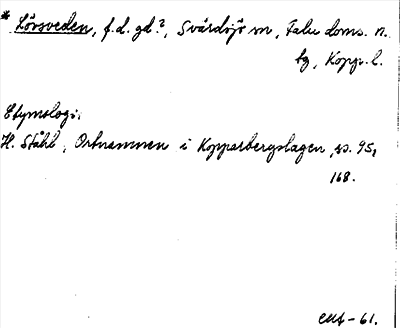 * Lövsveden, f.d. gd?, Svärdsjö sn, Falu doms. n.
tg, Kopp. l.
Etymologi:
H. Ståhl, Ortnamnen i Kopparbergslagen, ss. 95,
168.
-61.